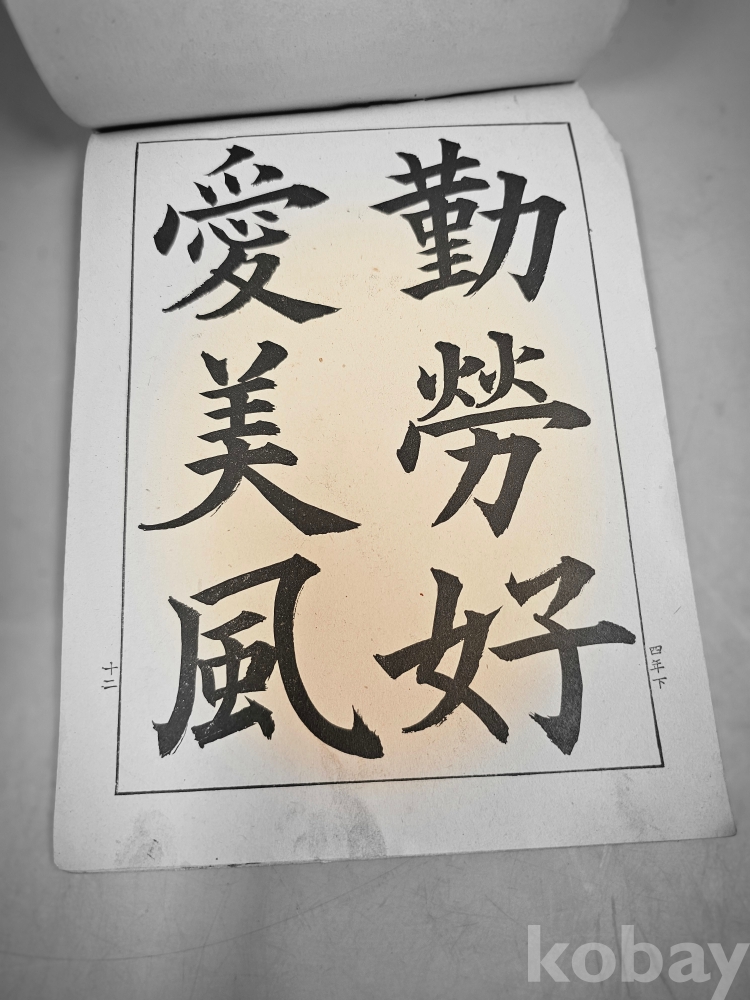 勤勞好
愛美風
四年下
十二
kobay